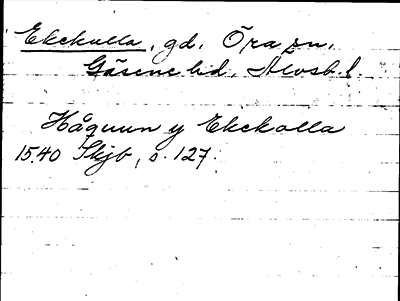 Ekekulla, gd. Öra sn.
Gäsene hd. Älvsb. l.
Håquun y Ekekolla
1540 Skjb, s. 127.